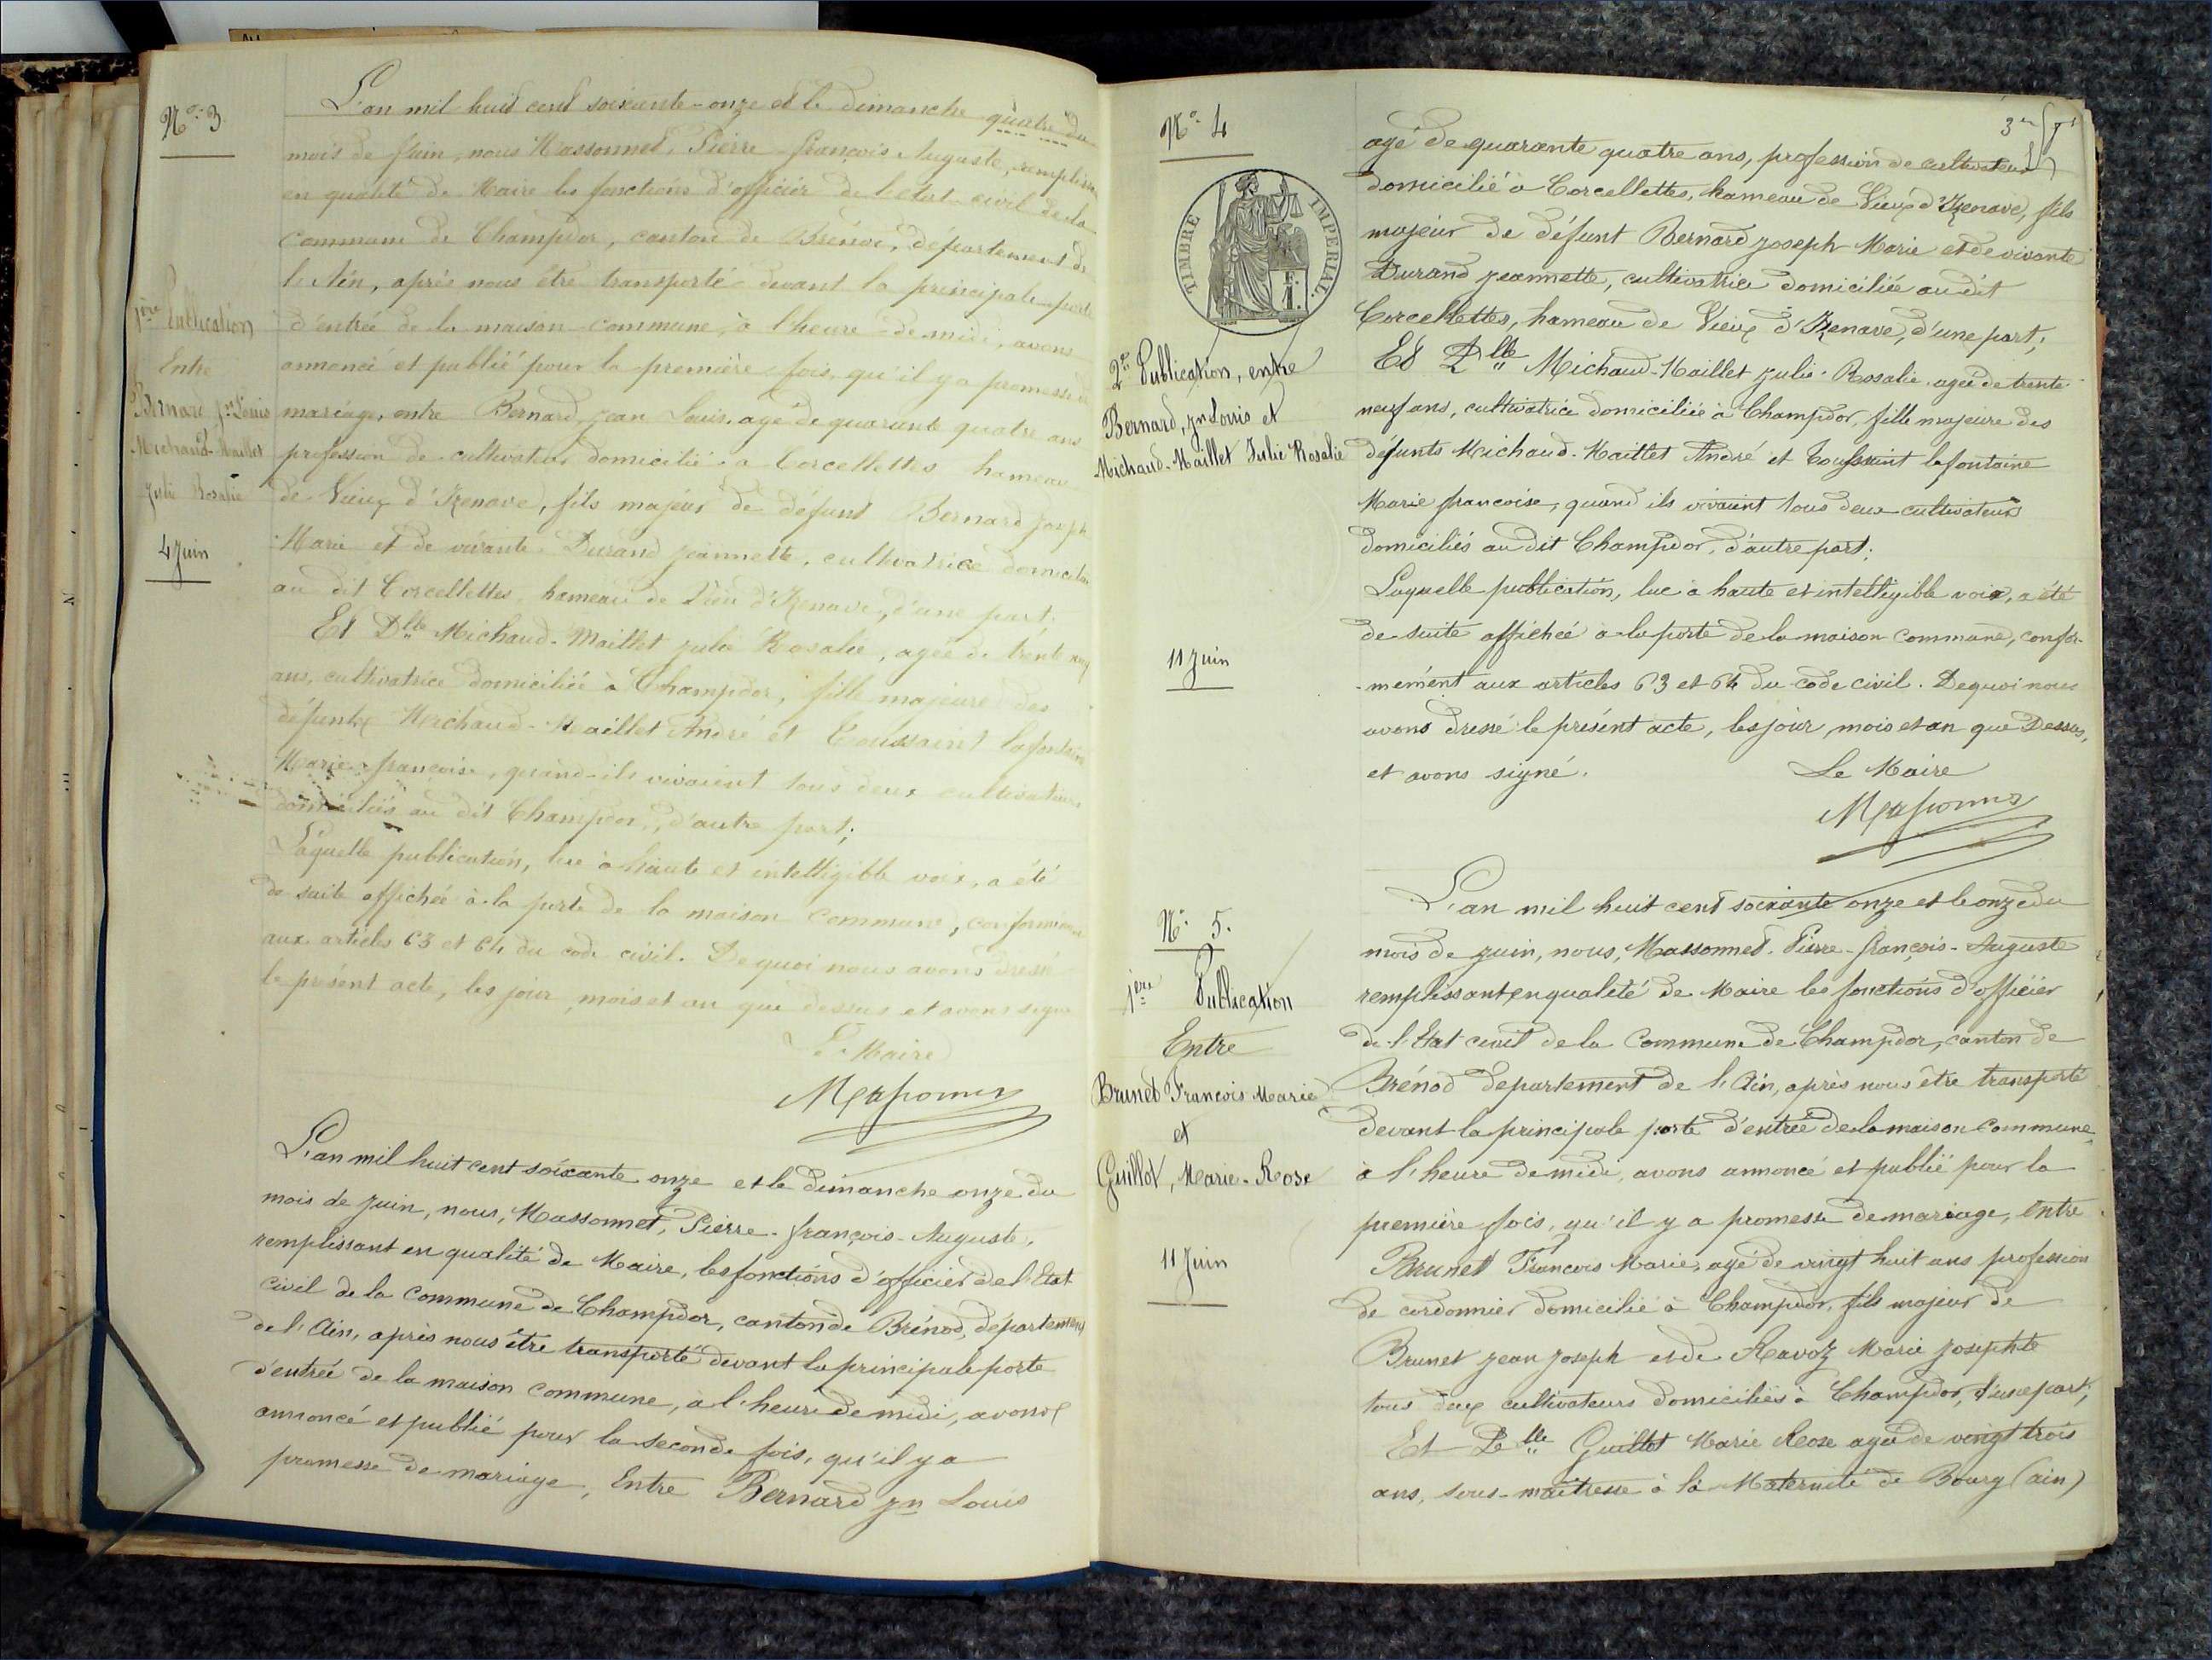 N° 3
1ère Publication
Entre
Bernard Jn Louis
Michaud-Maillet
Julie Rosalie
4 Juin
L'an mil huit cent soixante-onze et le dimanche quatre du
mois de Juin, nous Massonnet, Pierre françois Auguste, remplissant
en qualité de Maire les fonctions d'officier de l'état-civil de la
Commune de Champdor, canton de Brénod, département de
l'Ain, après nous être transporté devant la principale porte
d'entrée de la maison commune, à l'heure de midi, avons
annoncé et publié pour la première fois, qu'il y a promesse de
mariage, entre Bernard, Jean Louis, agé de quarante quatre ans
profession de cultivateur domicilié à Corcellettes hameau
de Vieux d'Izenave, fils majeur de défunt Bernard Joseph
Marie et de vivante Durand Jeannette, cultivatrice domiciliée
au dit Corcellettes hameau de Vieu d'Izenave, d'une part.
Et Dlle Michaud-Maillet Julie Rosalie, agée de trente neuf
ans, cultivatrice domiciliée à Champdor, fille majeure des
défunts Michaud-Maillet André et Toussaint lafontaine
Marie-françoise, quand-ils vivaient tous deux cultivateurs
domiciliés au dit Champdor, d'autre part;
Laquelle publication, lue à haute et intelligible voix, a été
de suite affichée à la porte de la maison commune, conformément
aux articles 63 et 64 du code civil. De quoi nous avons dressé
le présent acte, les jour, mois et an que dessus et avons signé
Le Maire
Massonnet
L'an mil huit cent soixante onze et le dimanche onze du
mois de juin, nous, Massonnet, Pierre-françois-Auguste,
remplissant en qualité de Maire, les fonctions d'officier de l'Etat
civil de la Commune de Champdor, canton de Brénod, département
de l'Ain, après nous être transporté devant la principale porte
d'entrée de la maison commune, à l'heure de midi, avons
annoncé et publié pour la seconde fois, qu'il y a
promesse de mariage, Entre Bernard Jn Louis
N° 4
TIMBRE IMPERIAL
F. 1.
2e Publication, entre
Bernard, Jn Louis et
Michaud-Maillet Julie Rosalie
11 Juin
agé de quarante quatre ans, profession de cultivateur
domicilié à Corcellettes, hameau de Vieux d'Izenave, fils
majeur de défunt Bernard Joseph-Marie et de vivante
Durand Jeannette, cultivatrice domiciliée au dit
Corcellettes, hameau de Vieux d'Izenave, d'une part;
Et Dlle Michaud-Maillet Julie-Rosalie agée de trente
neuf ans, cultivatrice domiciliée à Champdor, fille majeure des
défunts Michaud-Maillet André et Toussaint lafontaine
Marie françoise, quand ils vivaient tous deux cultivateurs
domiciliés au dit Champdor, d'autre part;
Laquelle publication, lue à haute et intelligible voix, a été
de suite affichée à la porte de la maison commune, confor-
-mément aux articles 63 et 64 du code civil. De quoi nous
avons dressé le présent acte, les jour, mois et an que Dessus,
et avons signé.
Le Maire
Massonnet
N° 5.
1ère Publication
Entre
Brunet François Marie
et
Guillot, Marie-Rose
11 Juin
L'an mil huit cent soixante onze et le onze du
mois de juin, nous, Massonnet. Pierre-françois-Auguste
remplissant en qualité de Maire les fonctions d'officier
de l'Etat civil de la Commune de Champdor, canton de
Brénod departement de l'Ain, après nous être transporté
devant la principale porte d'entrée de la maison commune,
à l'heure de midi, avons annoncé et publié pour la
première fois, qu'il y a promesse de mariage, entre
Brunet François Marie, agé de vingt huit ans profession
de cordonnier domicilié à Champdor, fils majeur de
Brunet Jean Joseph et de Ravoz Marie Josephte
tous deux cultivateurs domiciliés à Champdor, d'une part;
Et Dlle Guillot Marie Rose agée de vingt trois
ans, sous-maîtresse à la Maternité de Bourg (ain)